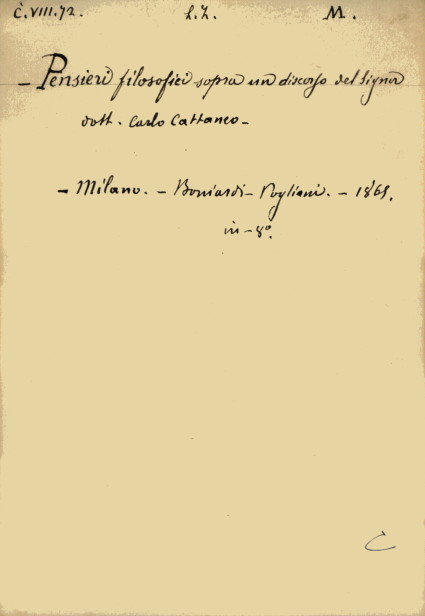 Č.VIII.72. L.Z. M.
- Pensieri filosofici sopra un discorso del Signor
dott. Carlo Cattaneo -
- Milano. - Boniardi - Pogliani. - 1861.
in - 8º.
C